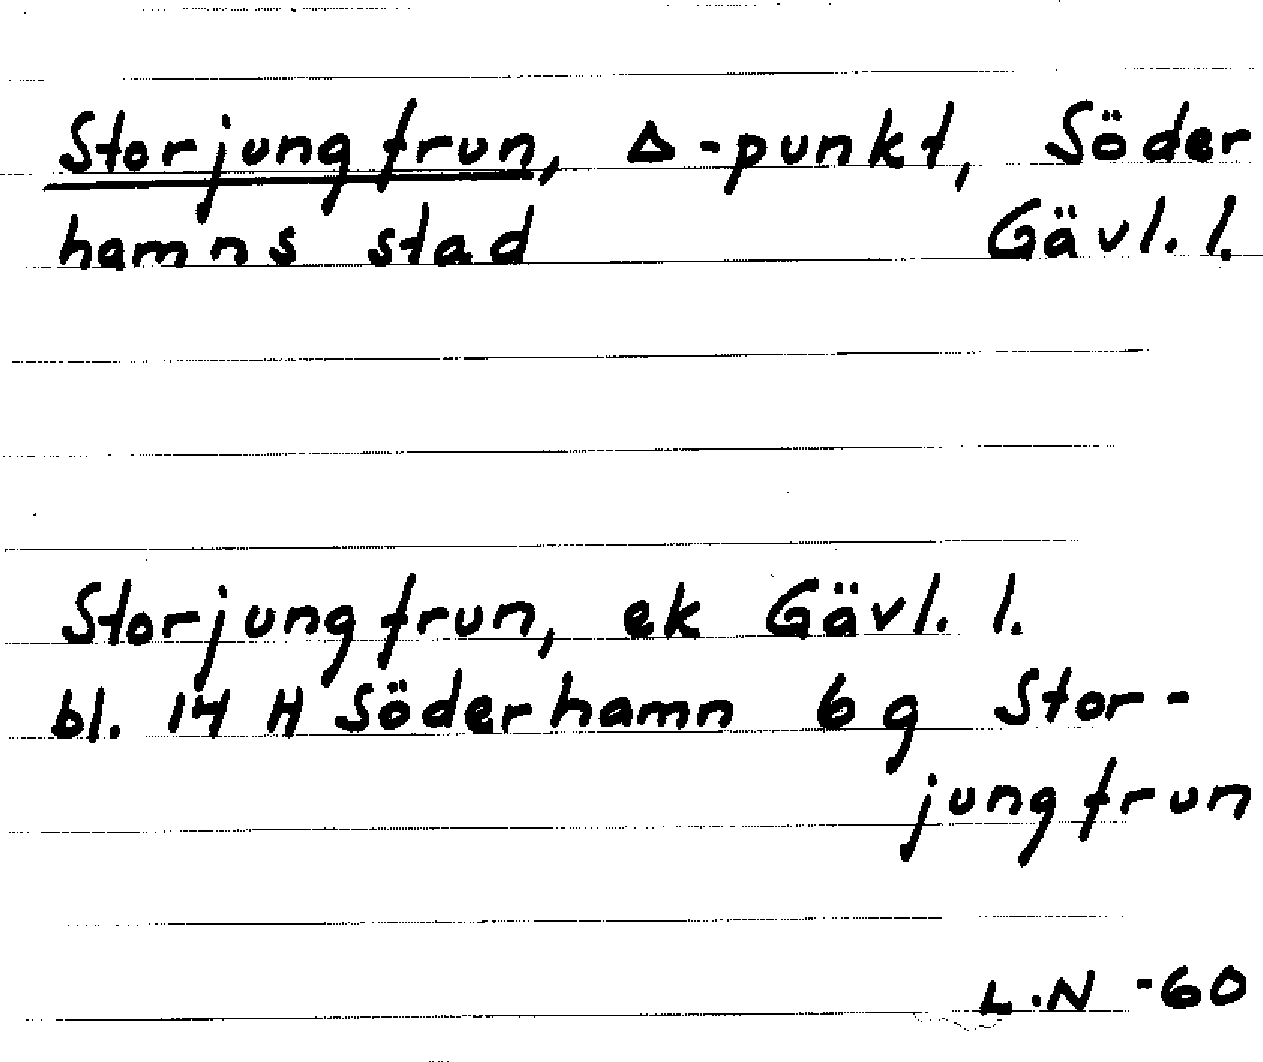 Storjungfrun, Δ-punkt, Söder
hamns stad Gävl. l.
Storjungfrun, ek Gävl. l.
bl. 14 H Söderhamn 6 g Stor-
jungfrun
L.N -60